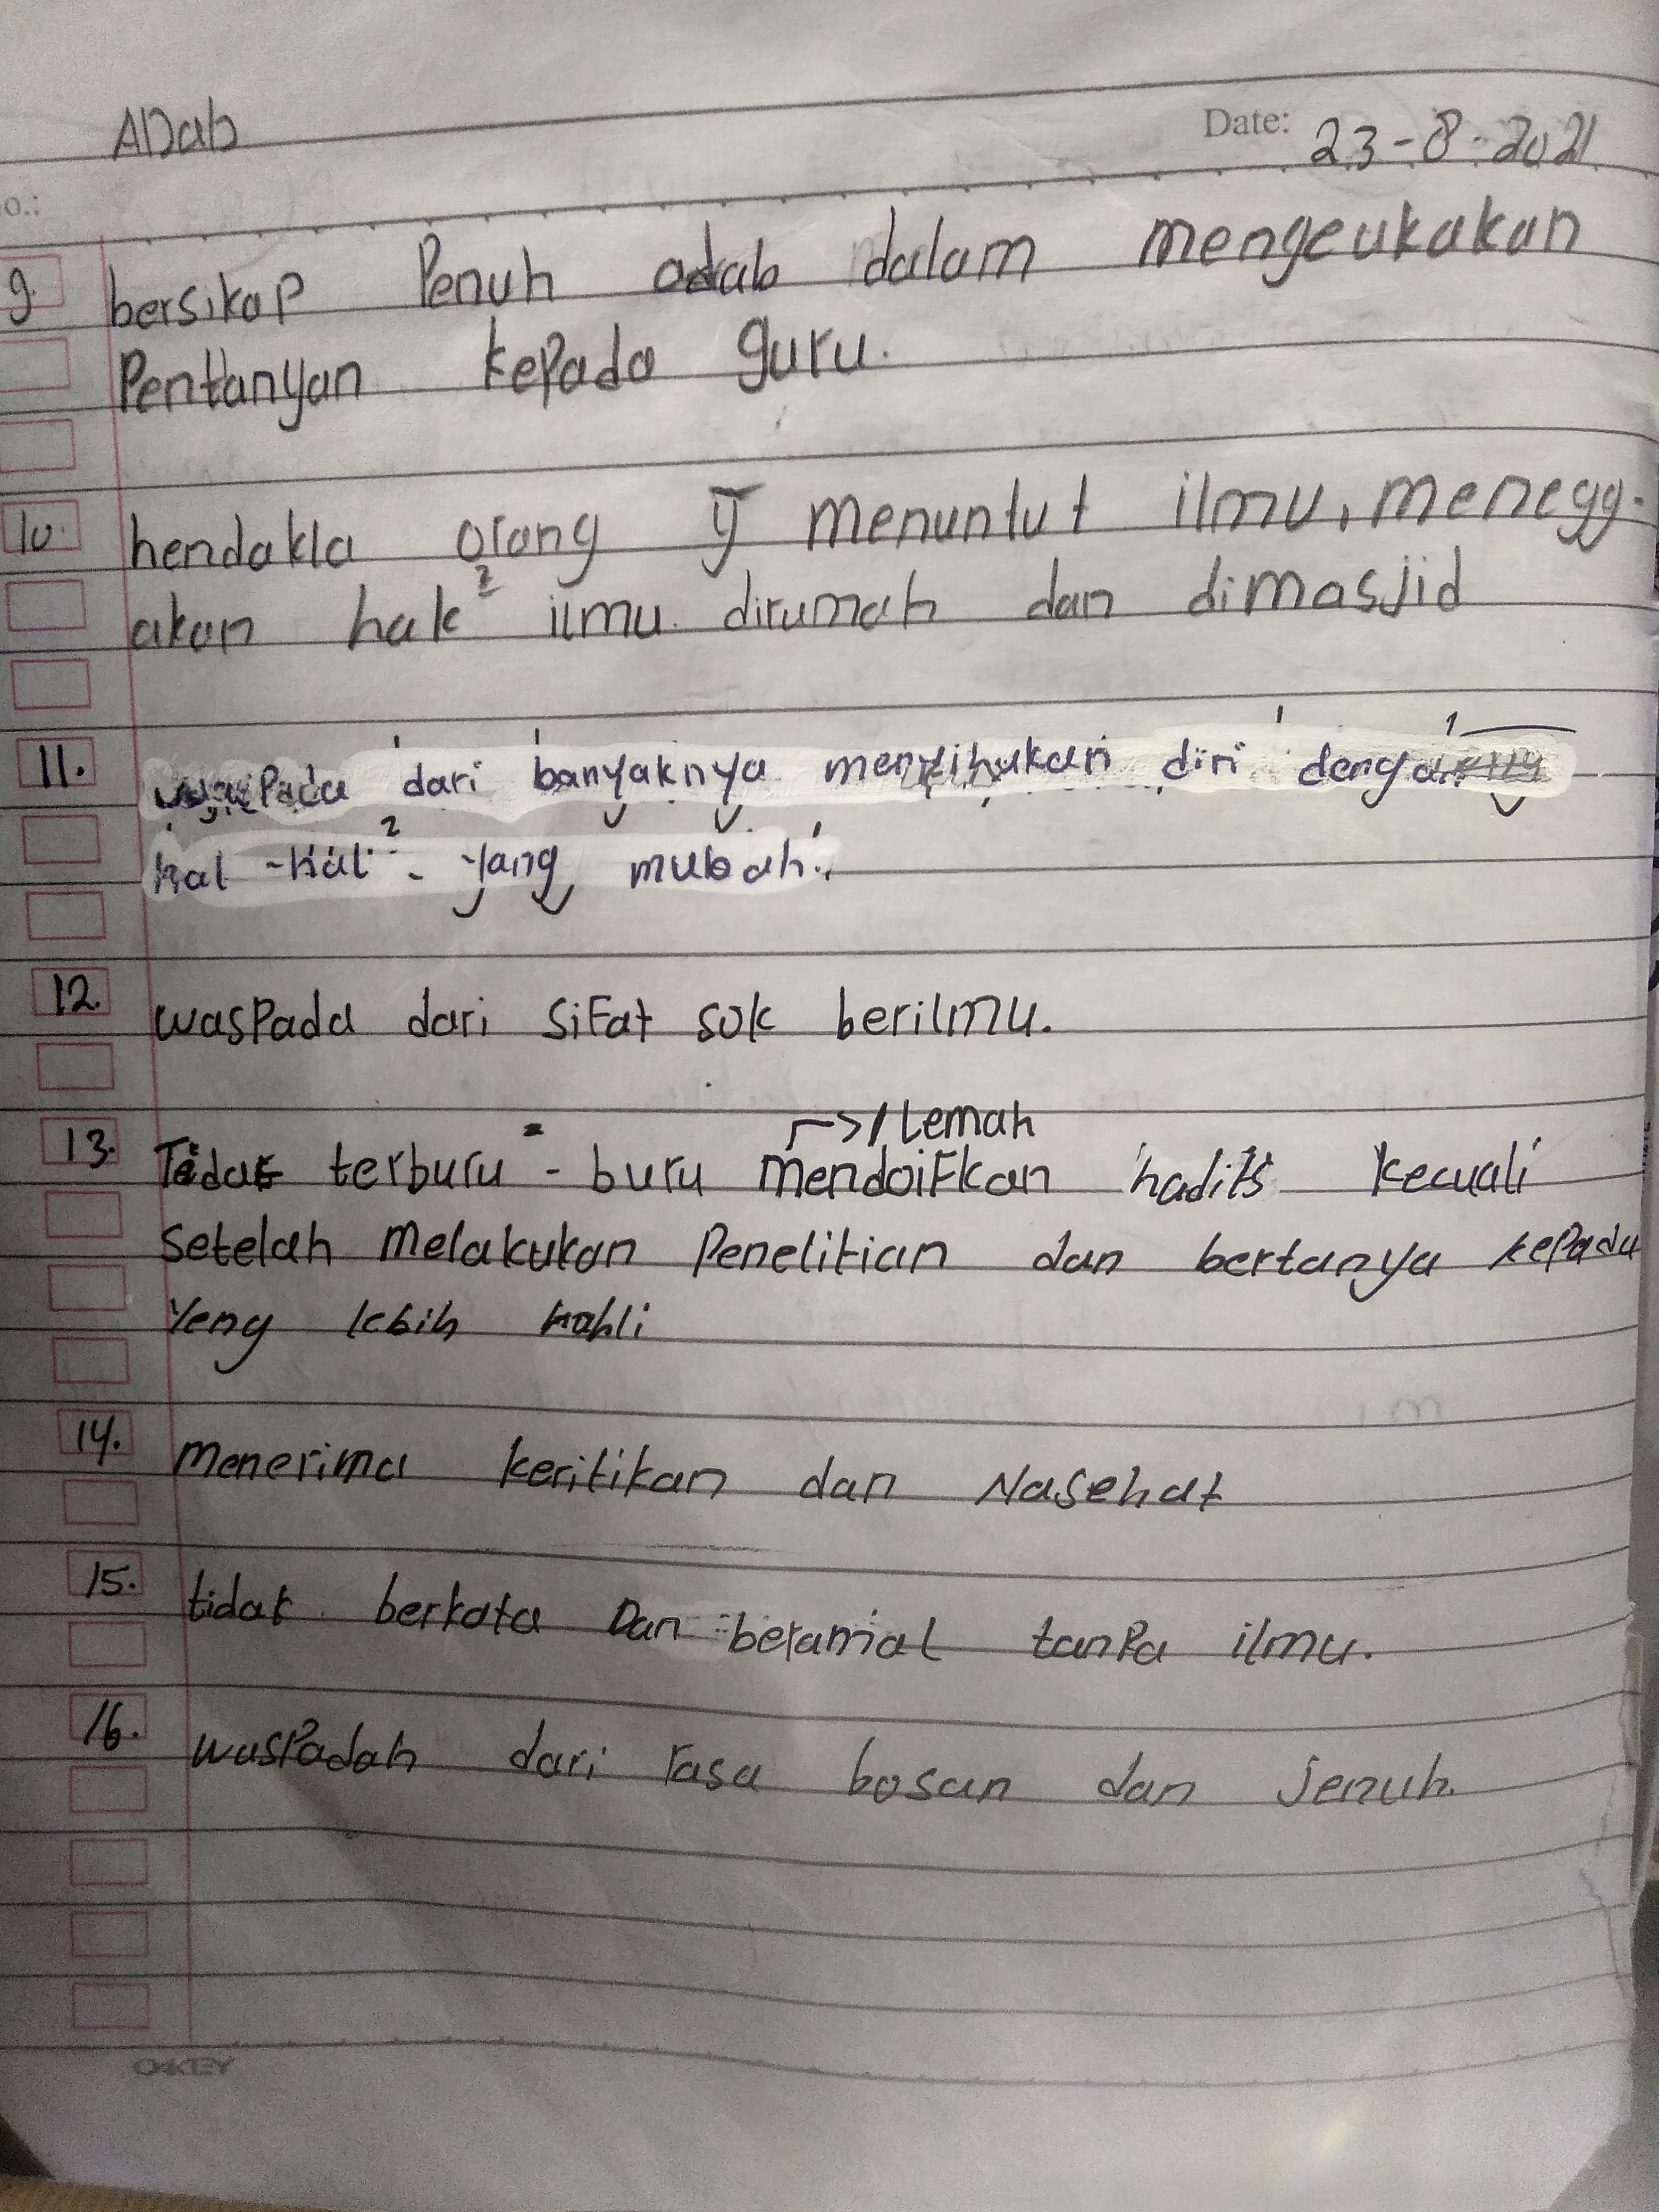 ADab
Date: 23-8-2021
o.:
9. bersikap Penuh adab dalam mengeukakan
Pentanyan kepada guru.
10. hendakla orang yg menuntut ilmu, menegg-
akan hak² ilmu dirumah dan dimasjid
11. waspada dari banyaknya menyibukan diri dengan
hal -hal² - yang mubah.
12. wasPada dari siFat sok berilmu.
→ / Lemah
13. Tidak terburu² - buru mendoiFkan hadits kecuali
setelah melakukan Penelitian dan bertanya kePada
Yeng lebih hahli
14. menerima keritikan dan Nasehat
15. tidak berkata Dan beramal tanPa ilmu.
16. wasPadah dari rasa bosan dan jenuh.
OAKEY